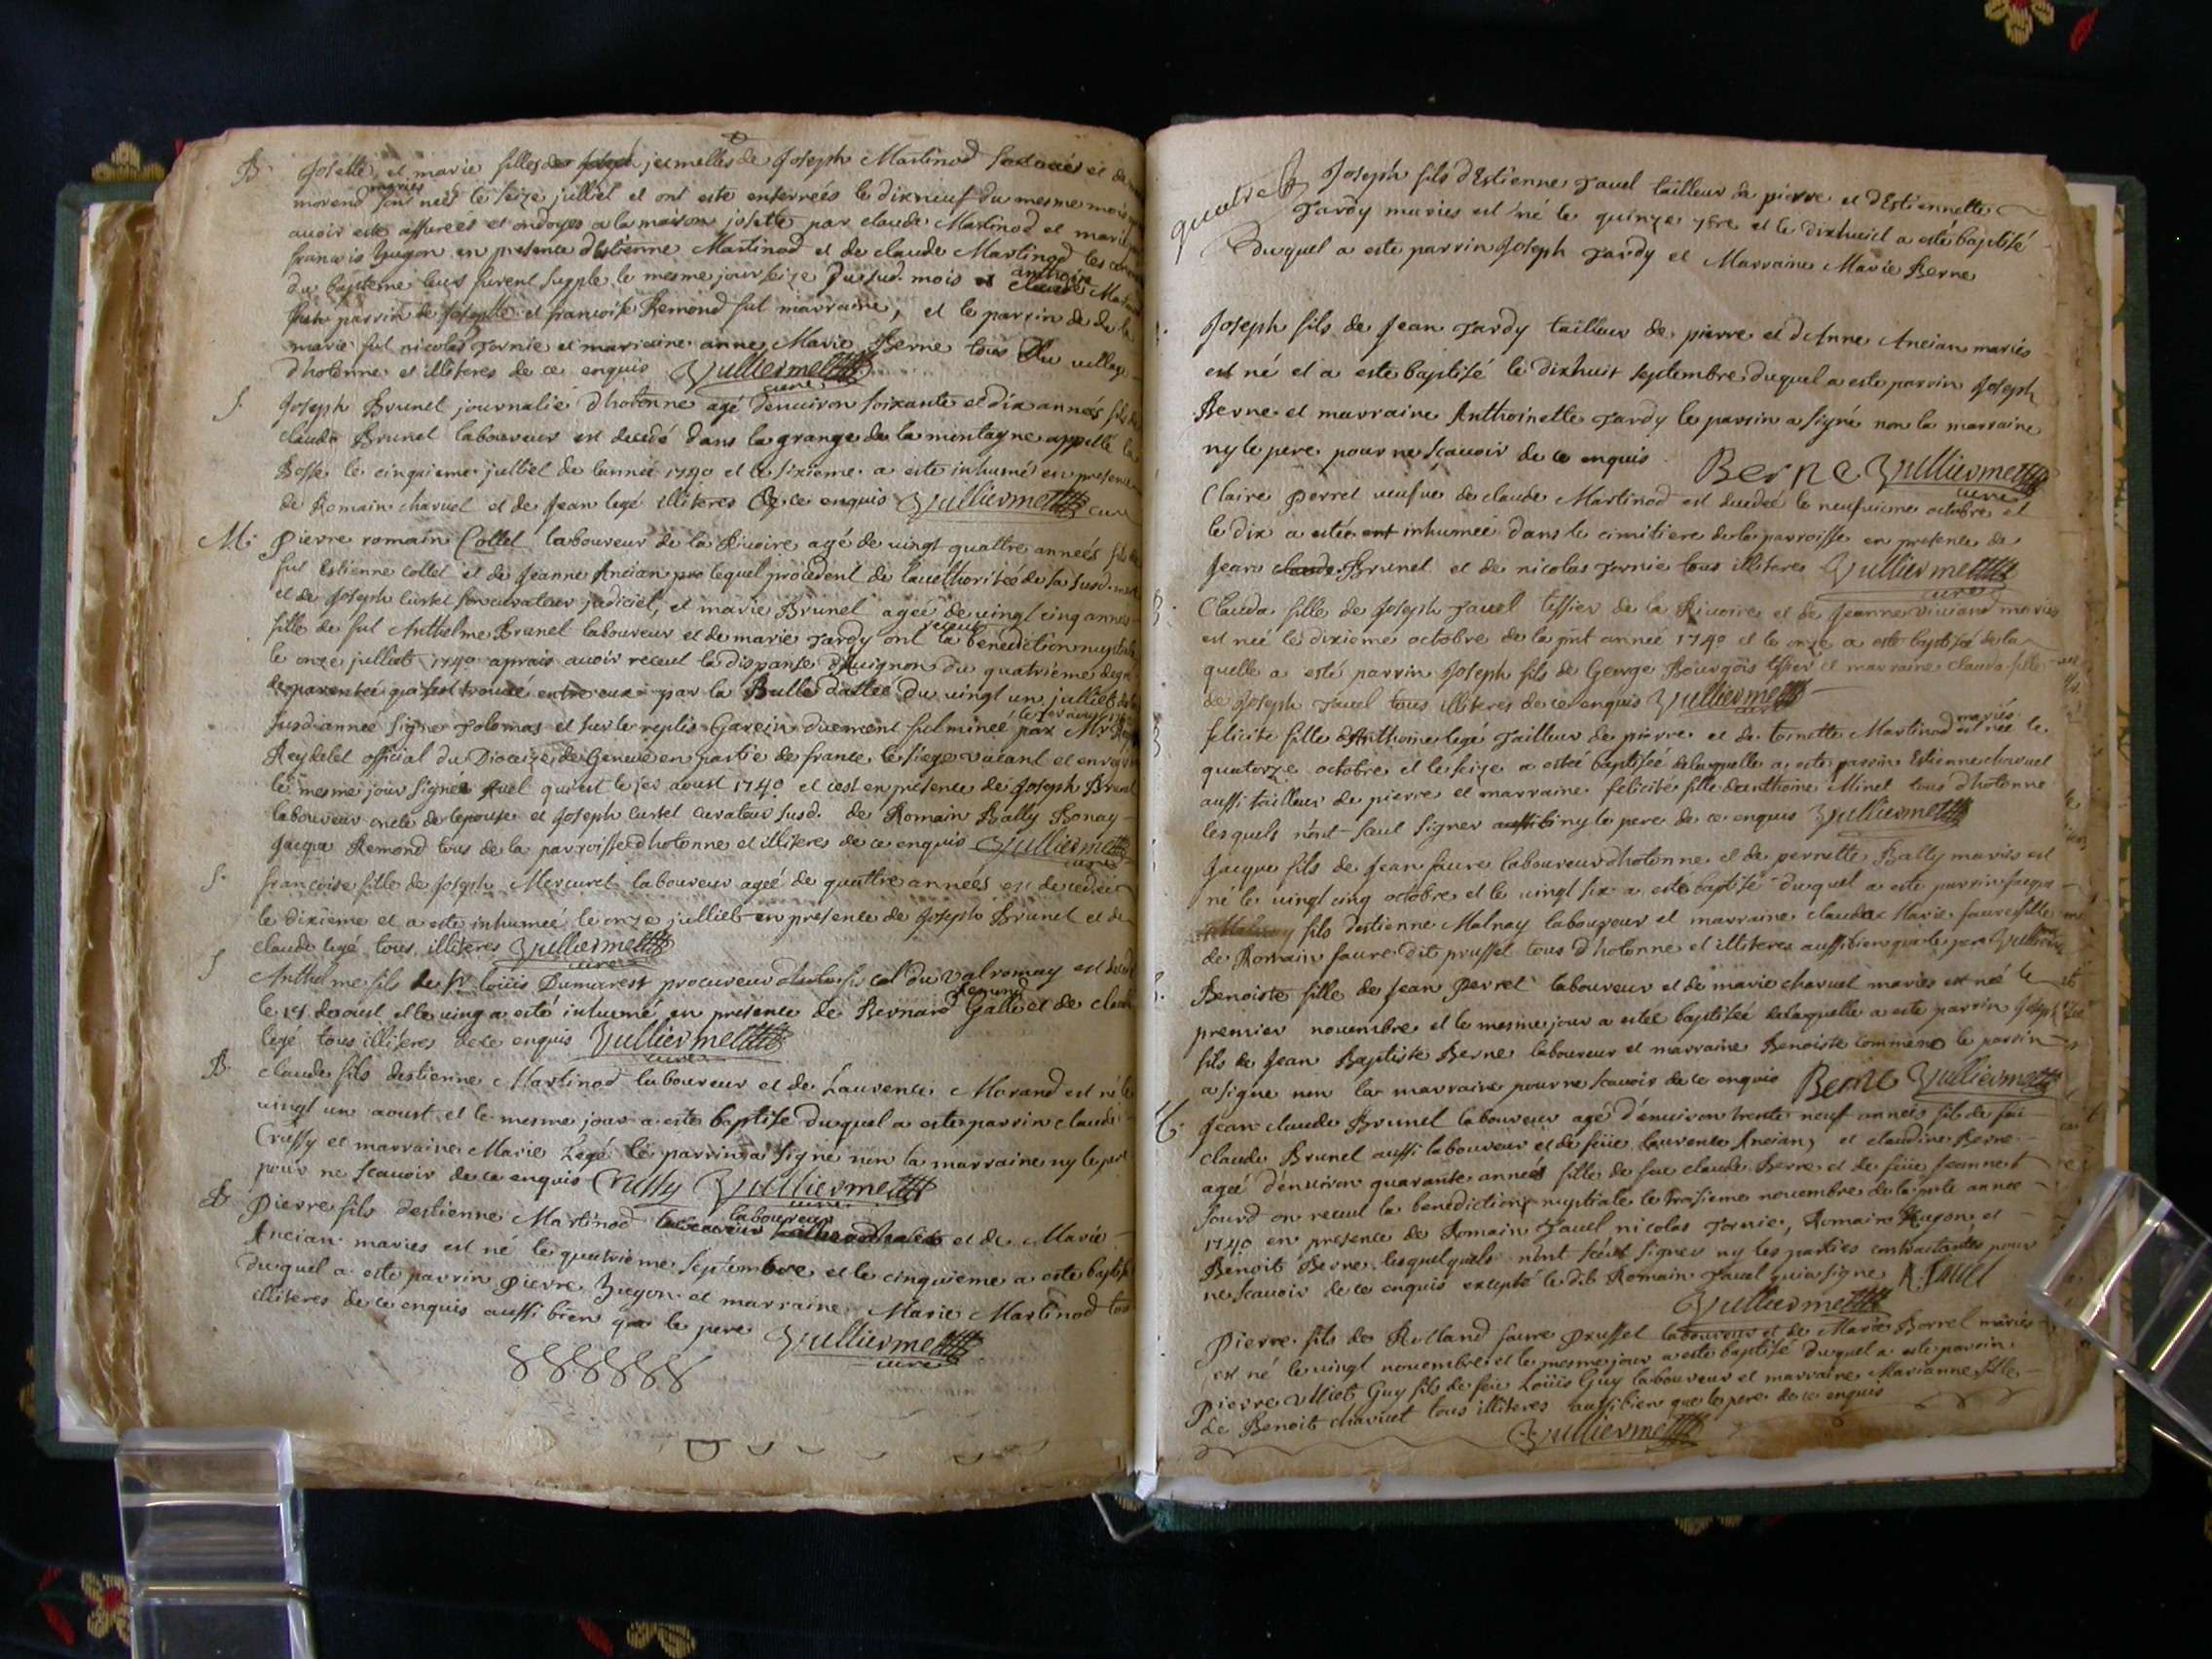 B. Josette et marie filles de jesmelles de Joseph Martinod et de
morend mariés sont neés le seize julliet et ont este enterreés le dixneuf du mesme mois
avoir este assureés et ondoyes a la maison josette par claude Martinod et marie
francois hugon en presence d'estienne Martinod et de claude Martinod les
du bapteme leurs furent supple le mesme jour seize du sud. mois anthoine
parrin de Josette et francoise Remond fut marraine, et le parrin de de la
marie fut nicolas Tornie et marraine anne Marie Berne tous du village
d'hotonne et illiteres de ce enquis Vulliermet curé
S. Joseph Brunet journalie d'hotonne agé denviron soixante et dix anneés fils de
claude Brunet laboureur est decedé dans la grange de la montagne appellé la
Bosse le cinquieme julliet de lanneé 1740 et le sixieme a este inhumé en presence
de Romain charvet et de Jean legé illiteres de ce enquis Vulliermet curé
M. Pierre romain Collet laboureur de la Rivoire agé de vingt quattre anneés fils de
fut Estienne Collet et de Jeanne Ancian lequel procedent de lauthoriteé de sa susd. mere
et de Joseph curtet son curateur judiciel, et marie Brunet ageé de vingt cinq anneés
fille de fut Anthelme Brunet laboureur et de marie Tardy ont receus la benediction nuptiale
le onze julliet 1740 aprais avoir receut la dispanse d'Avignon du quatrieme degré
de parenteé qui sest trouvé entre eux par la Bulle datteé du vingt un julliet de la
susd. anneé signe Tolomas et sur le replis Garcin duement fulmineé le 1er aoust 1740 par Mr
Reydelet official du Diocaize de Geneve en partie de france le siege vacant et
le mesme jour signée quest le jer aoust 1740 et cest en presence de Joseph Brunet
laboureur oncle de lepouse et Joseph curtet curateur susd. de Romain Bally Bonay
Jacque Remond tous de la parroisse d'hotonne et illiteres de ce enquis Vulliermet curé
S. francoise fille de Joseph Mercuret laboureur ageé de quattre anneés est decedeé
le dixieme et a este inhumeé le onze julliet en presence de Joseph Brunet et de
claude legé tous illiteres Vulliermet curé
S Anthelme fils de Sr louis Dumarest procureur du valromay est
le 19 d'aoust et le ving a esté inhumé en presence de Bernard Remond Gallie et de claude
legé tous illiteres de ce enquis Vulliermet curé
B. claude fils destienne Martinod laboureur et de Laurence Morand est né le
vingt un aoust et le mesme jour a este baptise duquel a este parrin claude
Crussy et marraine Marie Legé le parrin a signe non la marraine ny le pere
pour ne scavoir de ce enquis Crussy Vulliermet curé
B. Pierre fils destienne Martinod laboureur et de Marie
Ancian maries est né le quatrieme septembre et le cinquieme a este baptise
duquel a este parrin Pierre hugon et marraine Marie Martinod tous
illiteres de ce enquis aussi bien que le pere Vulliermet curé
quatre B Joseph fils d'Estienne Tavel tailleur de pierre et d'Estiennette
Tardy maries est né le quinze 7bre et le dixhuict a esté baptisé
duquel a este parrin Joseph Tardy et Marraine Marie Berne
Joseph fils de Jean Tardy tailleur de pierre et d'Anne Ancian mariés
est né et a este baptisé le dixhuit septembre duquel a este parrin Joseph
Berne et marraine Anthoinette Tardy le parrin a signé non la marraine
ny le pere pour ne scavoir de ce enquis Berne Vulliermet curé
Claire Perret veufve de claude Martinod est decedeé le neufvieme octobre et
le dix a esteé inhumeé dans le cimitiere de la parroisse en presence de
Jean Brunet et de nicolas Tornie tous illiteres Vulliermet curé
B. Clauda fille de Joseph Tavel tissier de la Rivoire et de Jeanne Viviand maries
est neé le dixieme octobre de la pnt anneé 1740 et le onze a este baptiseé de la
quelle a esté parrin Joseph fils de George Bourgois tissier et marraine clauda fille
de Joseph Tavel tous illiteres de ce enquis Vulliermet curé
B felicite fille d'Anthoine legé Tailleur de pierre et de tonette Martinod mariés est neé le
quatorze octobre et le seize a esteé baptiseé de laquelle a este parrin Estienne charvet
aussi tailleur de pierre et marraine felicité fille d'anthoine Minet tous d'hotonne
lesquels n'ont sceut signer ny le pere de ce enquis Vulliermet
Jacque fils de Jean faure laboureur d'hotonne et de pernette Bally mariés est
né le vingt cinq octobre et le vingt six a esté baptisé duquel a este parrin Jacque
fils destienne Malnay laboureur et marraine claudae Marie faure fille
de Romain faure dit prussel tous d'hotonne et illiteres aussibien que le pere Vulliermet
B. Benoiste fille de Jean Perret laboureur et de marie charvet maries est neé le
premier novembre et le mesme jour a esteé baptiseé de laquelle a este parrin Joseph
fils de Jean Baptiste Berne laboureur et marraine Benoiste comméne le parrin
a signe non la marraine pour ne scavoir de ce enquis Berne Vulliermet
M. Jean claude Brunet laboureur agé d'environ trente neuf anneés fils de feu
claude Brunet aussi laboureur et de feüe Laurence Ancian, et claudine Berne
ageé d'environ quarante anneés fille de feu claude Berne et de feüe Jeanne
Jourd on receut la benediction nuptiale le troisieme novembre de la pnte anneé
1740 en presence de Romain Tavel, nicolas Tornie, Romain Hugon, et
Benoit Berne lesquelquels n'ont sceut signer ny les parties contraitantes pour
ne scavoir de ce enquis excepté le dit Romain Tavel qui a signe R. Tavel
Vulliermet
Pierre fils de Rolland faure Prussel laboureur et de Marie Borrel mariés
est né le vingt novembre et le mesme jour a este baptisé duquel a este parrin
Pierre Ulliet Guy fils de feu Loüis Guy laboureur et marraine Marianne fille
de Benoit charvet tous illiteres aussi bien que le pere de ce enquis
Vulliermet